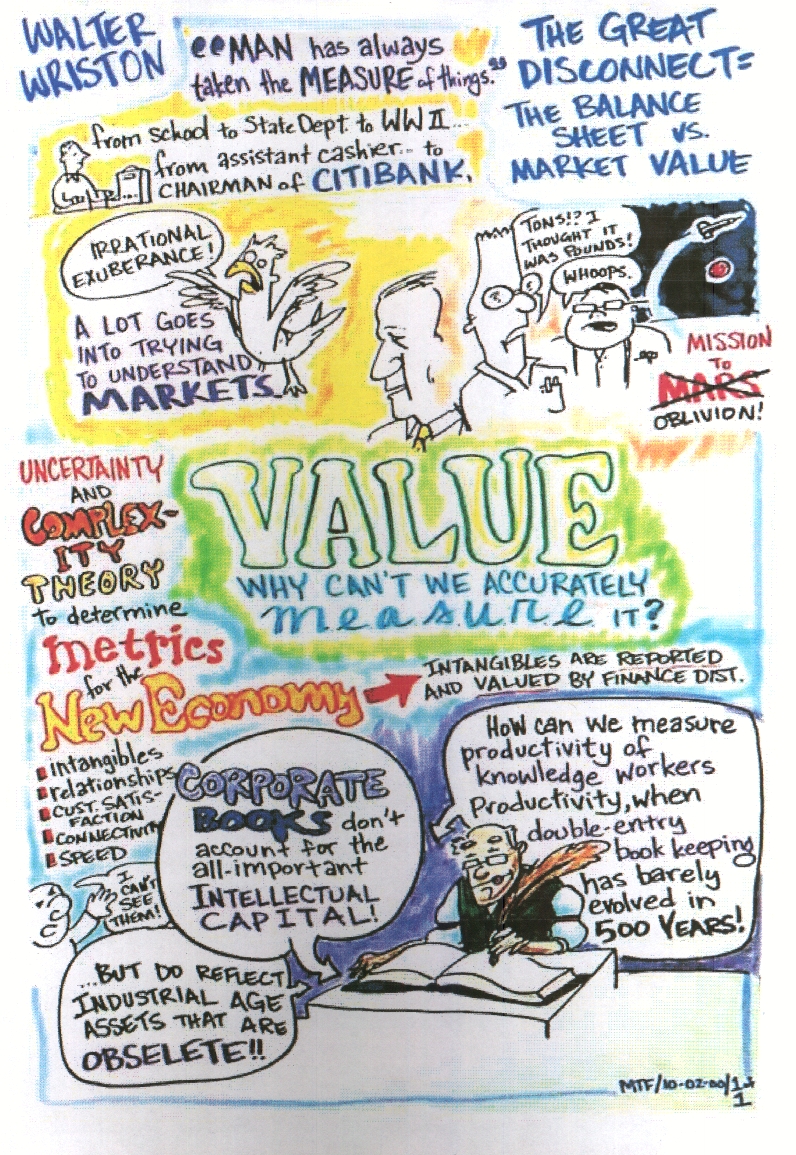 WALTER
WRISTON
"MAN has always
taken the MEASURE of things."
THE GREAT
DISCONNECT=
THE BALANCE
SHEET vs.
MARKET VALUE
from school to State Dept. to WW II...
from assistant cashier... to
CHAIRMAN of CITIBANK.
IRRATIONAL
EXUBERANCE!
A LOT GOES
INTO TRYING
TO UNDERSTAND
MARKETS.
TONS!? I
THOUGHT IT
WAS POUNDS!
WHOOPS.
MISSION
TO
MARS
OBLIVION!
UNCERTAINTY
AND
COMPLEX-
ITY
THEORY
to determine
metrics
for the
New Economy
VALUE
WHY CAN'T WE ACCURATELY
measure IT?
INTANGIBLES ARE REPORTED
AND VALUED BY FINANCE DIST.
intangibles
relationships
CUST. SATIS-
FACTION
CONNECTIVITY
SPEED
I
CAN'T
SEE
THEM!
CORPORATE
BOOKS don't
account for the
all-important
INTELLECTUAL
CAPITAL!
...BUT DO REFLECT
INDUSTRIAL AGE
ASSETS THAT ARE
OBSELETE!!
How can we measure
productivity of
knowledge workers
Productivity, when
double-entry
book keeping
has barely
evolved in
500 YEARS!
MTF/10-02-00/1
1